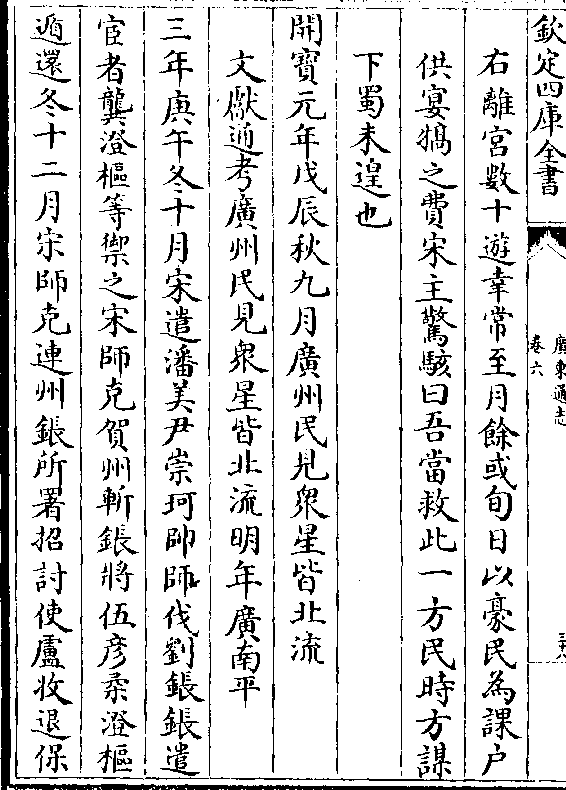 欽定四庫全書
廣東通志
卷六
右離宮數十遊幸常至月餘或旬日以豪民為課户
供宴犒之費宋主驚駭曰吾當救此一方民時方謀
下蜀未遑也
開寶元年戊辰秋九月廣州民見衆星皆北流
文獻通考廣州民見衆星皆北流明年廣南平
三年庚午冬十月宋遣潘美尹崇珂帥師伐劉鋹鋹遣
宦者龔澄樞等禦之宋師克賀州斬鋹將伍彦柔澄樞
遁還冬十二月宋師克連州鋹所署招討使盧收退保